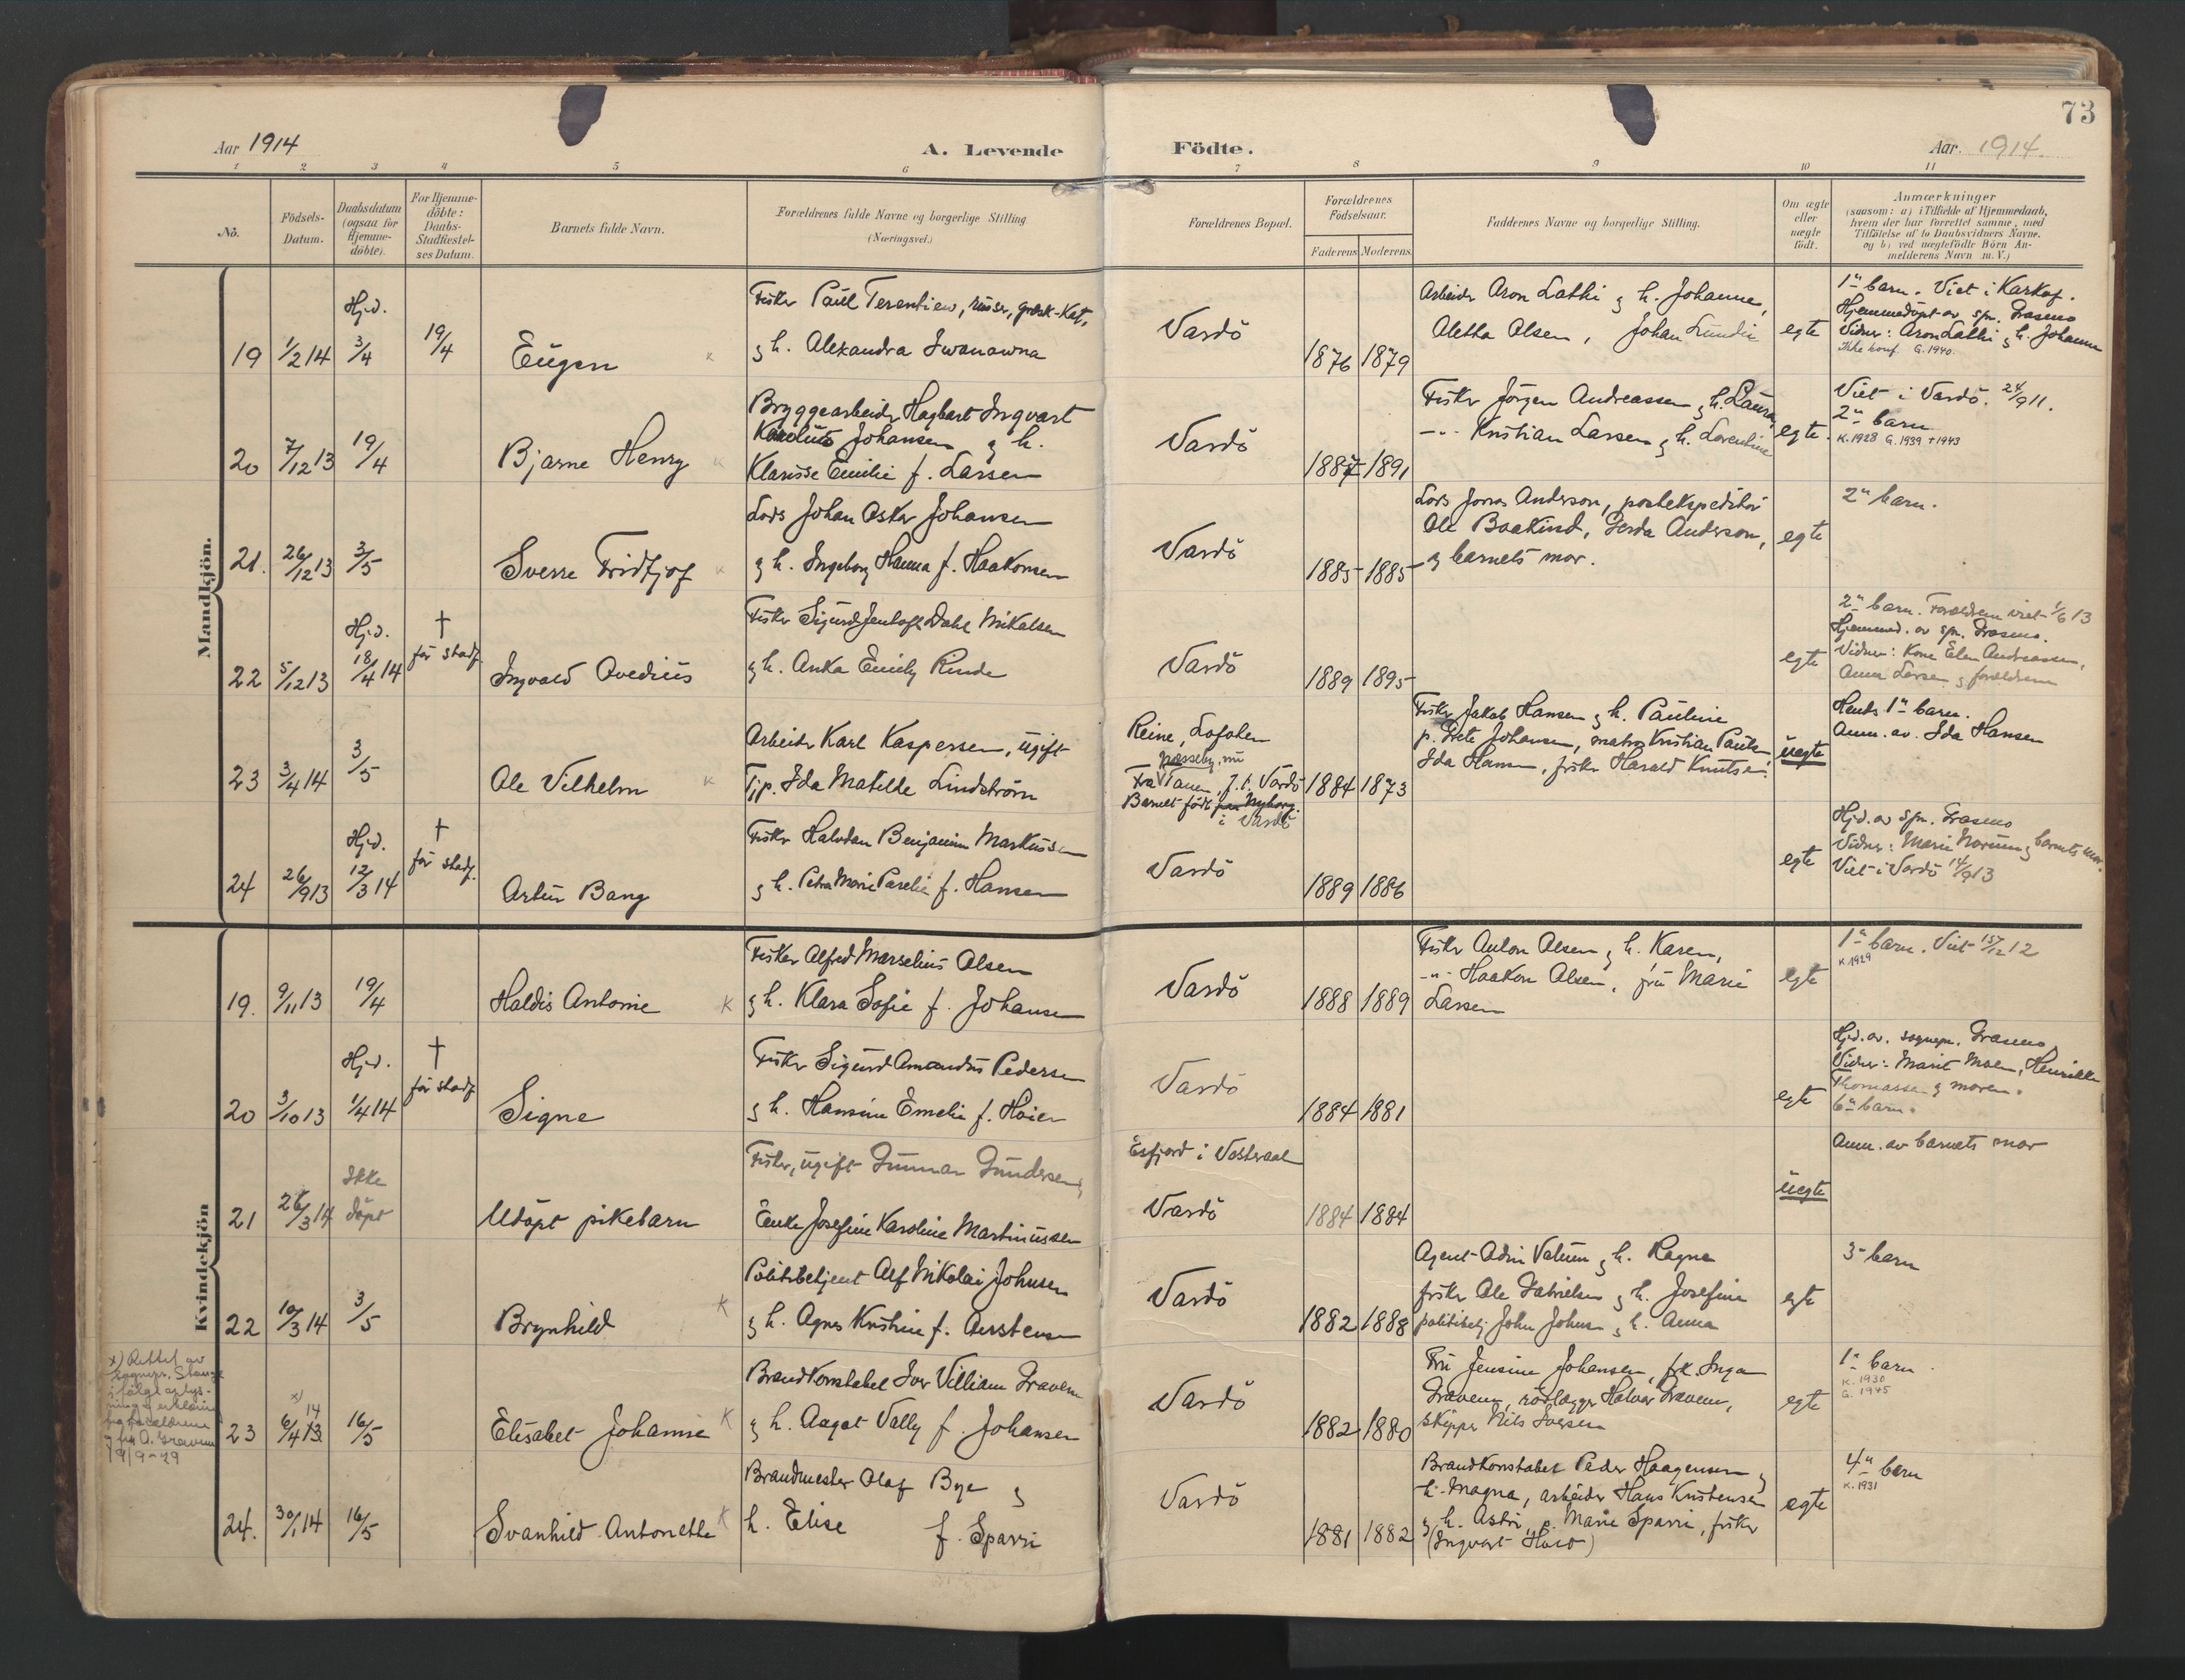 73
Aar 1914
A. Levende Födte.
Aar. 1914.
1 2 3 4 5 6 7 8 9 10 11
No.
Födsels-
Datum.
Daabsdatum
(ogsaa for
Hjemme-
döbte).
For Hjemme-
döbte:
Daabs-
Stadfæstel-
ses Datum.
Barnets fulde Navn.
Forældrenes fulde Navne og borgerlige Stilling
(Næringsvei.)
Forældrenes Bopæl.
Forældrenes
Födselsaar.
Faderens Moderens
Faddernes Navne og borgerlige Stilling.
Om ægte
eller
uægte
födt.
Anmærkninger
(saasom: a) i Tilfælde af Hjemmedaab,
hvem der har forrettet samme, med
Tilföielse af to Daabsvidners Navne.
og b) ved uægtefödte Börn An-
melderens Navn m. V.)
Mandkjön.
19 1/2 14
Hj.d.
3/4
19/4
Eugen
Fisker Paul Terentiew, russer, græsk-kat,
g h. Alexandra Iwanawna
Vardö
1876 1879
Arbeider Aron Lathi g h. Johanne,
Aletha Olsen, Johan Lundi
egte
1ste barn. Viet i Karkof.
Hjemmedöpt av spr. Grasmo
Vidner: Aron Lathi g h. Johanne
Ikke konf. G. 1940.
20 7/12 13
19/4
Bjarne Henry
Bryggearbeider Hagbart Ingvart
Johansen g h.
Klarisse Emilie f. Larsen
Vardö
1887 1891
Fisker Jörgen Andreassen g h. Laura,
-"- Kristian Larsen g h. Lorentine
egte.
Viet i Vardö. 24/9 11.
2" barn
K. 1928 G. 1939 + 1943
21. 26/12 13
3/5
Sverre Fridtjof
Lods Johan Oskar Johansen
g h. Ingeborg Hanna f. Haakonsen
Vardö
1885 1885
Lods Jonas Anderson, postekspeditör
Ole Baakind, Gerda Anderson,
g barnets mor.
egte
2" barn.
22 5/12 13
Hj.d.
18/4 14
†
för stadf.
Ingvald Ovedius
Fisker Sigurd Jentoft Dahl Mikalsen
g h. Anka Emily Rinde
Vardö
1889 1895
egte
2" barn. Forældrene viet 1/6 13
Hjemmed. av spr. Grasmo.
Vidner: Kone Elen Andreassen,
Anna Larsen g forældrene
23 3/4 14
3/5
Ole Vilhelm
Arbeider Karl Kaspersen, ugift
Tjp. Ida Matilde Lindström
Reine, Lofoten
Næsseby, nu
Fra Tanen, f. t. Vardö
Barnet födt paa Nyborg.
i Vardö
1884 1873
Fisker Jakob Hansen g h. Pauline
p. Grete Johansen, matros Kristian Pauls
Ida Hansen, fisker Harald Knutsen.
uegte
Hends 1ste barn.
Anm. av. Ida Hansen
24 26/9 13
Hj.d.
12/3 14
†
för stadf.
Artur Bang
Fisker Halvdan Benjamin Markussen
g h. Petra Marie Parelie f. Hansen
Vardö
1889 1886
egte
Hj.d. av spr. Grasmo
Vidner: Marie Norum g barnets mor.
Viet i Vardö 14/9 13
Kvindekjön
19. 9/11 13
19/4
Haldis Antonie K
Fisker Alfred Marselius Olsen
g h. Klara Sofie f. Johansen
Vardö
1888 1889
Fisker Anton Olsen g h. Karen,
-"- Haakon Olsen, fru Marie
Larsen
egte
1ste barn. Viet 15/12 12
K 1929
20 3/10 13
Hj.d.
1/4 14
†
för stadf
Signe
Fisker Sigurd Amandus Pedersen
g h. Hansine Emelie f. Hoier
Vardö
1884 1881
egte
Hj.d. av. sognepr. Grasmo
Vidner: Marit Moen, Henrikke
Thomassen g moren.
6te barn.
21 26/3 14
Ikke
döpt
Udöpt pikebarn
Fisker, ugift Gunnar Gundersen,
Enke Josefine Karoline Martinussen
Esfjord i Vesteraal
Vardö
1884 1884
uegte
Anm. av barnets mor
22 10/3 14
3/5
Brynhild K
Politibetjent Alf Nikolai Johnsen
g h. Agnes Kristine f. Aurstensen
Vardö
1882 1888
Agent Odin Vatum g h. Ragna
fisker Ole Gabrielsen g h. Josefine
politibetj John Johnsen g h. Anna
egte
3" barn
x) Rettet av
sognepr. Stange
ifölge oplys-
ning g erklæring
fra forældrene
g frk A. Gravem
19/9-29
23 6/4 13. x) 14
16/5
Elisabet Johanne K
Brandkonstabel Iver Villiam Gravem
g h. Aagot Vally f. Johansen
Vardö
1882 1880
Fru Jensine Johansen, frk. Inga
Gravem, rörlægger Halvor Gravem,
skipper Nils Iversen
egte
1ste barn
K. 1930
G. 1945
24. 30/1 14
16/5
Svanhild Antonette K
Brandmester Olaf Bye g
h. Elise f. Sparri
Vardö
1881 1882
Brandkonstabel Peder Haagensen g
h. Magna, arbeider Hans Kristensen
g h. Astri, p. Marie Sparri, fisker
(Ingvart Hard)
egte
4" barn
K. 1931